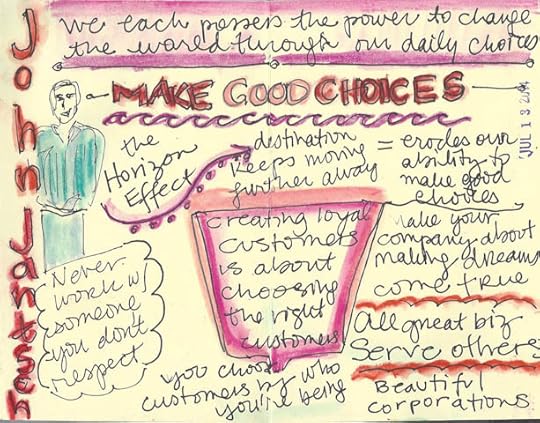 John Jantsch
we each possess the power to change
the world through our daily choices
JUL 13 2014
MAKE GOOD CHOICES
the
Horizon
Effect
destination
keeps moving
further away
= erodes our
ability to
make good
choices
creating loyal
customers
is about
choosing
the right
customers
Make your
company about
making dreams
come true
Never
work w/
someone
you don't
respect
All great biz
serve others
you choose
customers by who
you're being
Beautiful
corporations